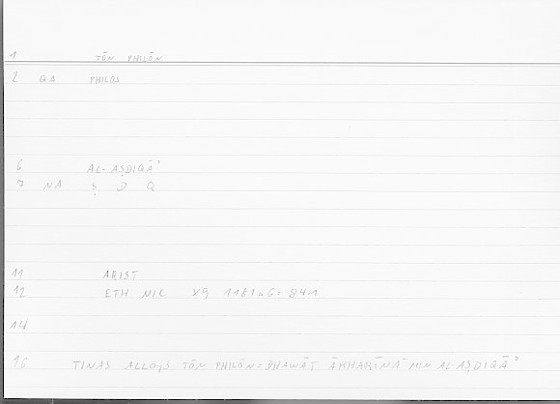 1 TŌN PHILŌN
2 QA PHILOS
6 AL-AṢDIQĀʾ
7 NA Ṣ D Q
11 ARIST
12 ETH NIC X9 1181a6
14
16 TINAS ALLOYS TŌN PHILŌN = ĀKHARĪNA MIN AL-AṢDIQĀʾ